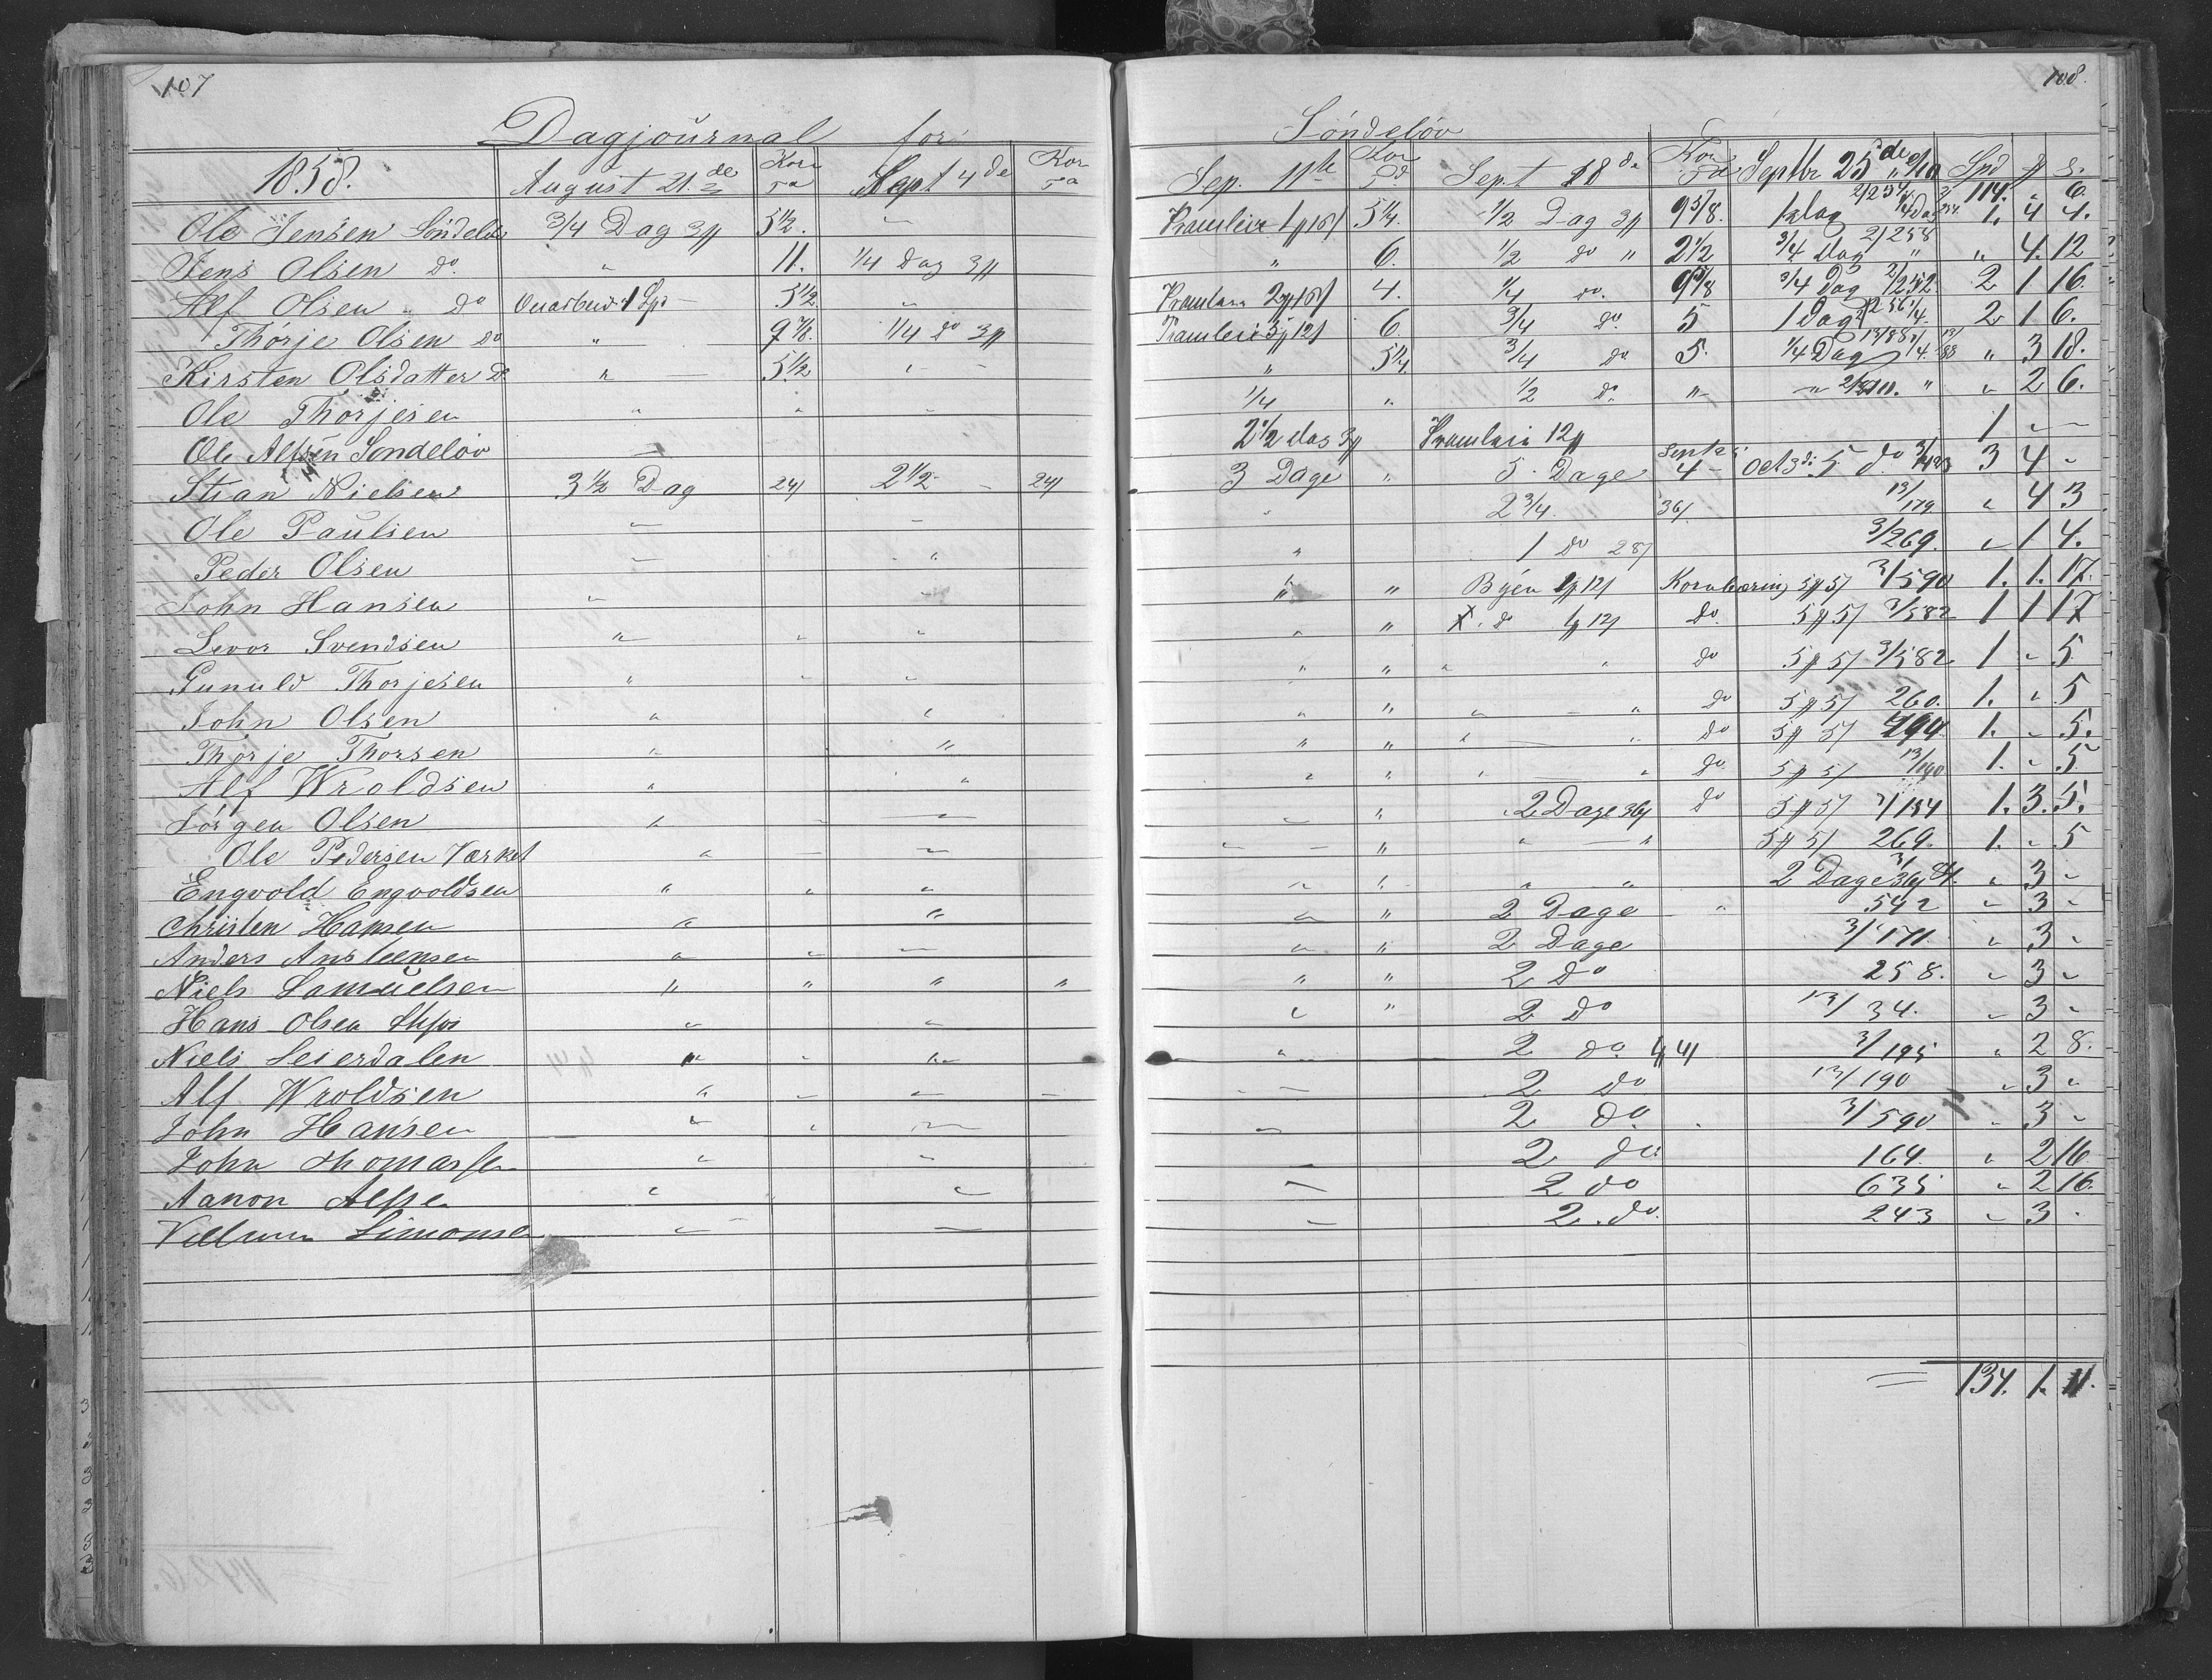 107
108.
Dagjournal for Söndelöv
1858. August 21.de Korn Td Sept 4de Korn Td Sep. 11te Korn Td Sept 18de Korn Td Septbr 25de Spd # s.
114. " 6.
Ole Jensen Söndeløv 3/4 Dag 3# 5 1/2. " Pramleie 1# 16/ 5 1/4. 1/2 Dag 3# 9 5/8. 1. 4 4.
Jens Olsen do. " 11. 1/4 Dag 3# " 6. 1/2 do " 2 1/2 3/4 Dag 2/258 " 4. 12
Alf Olsen " do 1 Spd - 5 1/2 " 2# 16/ 4. 1/4 do. 9 5/8 3/4 Dag 2/252. 2 1 16.
Thörje Olsen do " 9 7/8. 1/4 do 3# Pramleie 3# 12/ 6. 3/4 do. 5 1 Dag 2 1 6.
Kirsten Olsdatter do " 5 1/2 " - " 5 1/4 3/4 do 5. 1/4 Dag " 3 18.
Ole Thorjesen " " " 1/4 " 1/2 do. " " " 2 6.
Ole Alfsen Sondeløv " 2 1/2 das 3# Pramleie 12# 1 " -
Stian Nielsen 3 1/2 Dag 24/ 2 1/2 - 24/ 3 Dage " 5 Dage 4 - Oct 3di 5 do. 3 4 "
Ole Paulsen " - " 2 3/4. 36/ 13/179 " 4 3
Peder Olsen - " " 1 do 28/ 3/269. " 1 4.
John Hansen " " " " Byen 1# 12/ Kornbæring 5# 5/ 3/590 1. 1. 17.
Levor Svendsen " " " " " X. do 1# 12/ do. 5# 5/ 3/582 1 1 17
Gunuld Thorjesen " " " " " " " do 5# 5/ 3/582 1 " 5
John Olsen " " " " " - " do 5# 5/ 260. 1. " 5
Thorje Thorsen " " " " " - " do 5# 5/ 294 1. " 5.
Alf Wroldsen " " " " " - " do 5# 5/ 13/190 1. " 5
Jörgen Olsen " - - - " 2 Dage 36/ do 5# 5/ 3/154 1. 3. 5.
Ole Pedersen Værket " - - " - " " - " 5# 5/ 269. 1. " 5
Engvold Engvoldsen " " " " " " " 2 Dage 36/ " 3 "
Christen Hansen " " " " 2 Dage " 542 " 3 "
Anders Ansteensen " " - " " 2 Dage 3/171. " 3 "
Niels Samuelsen " " " " " " 2 do 258. " 3 "
Hans Olsen " " " " 2 do 13/34. " 3 "
Niels Leierdalen " " " " 2 do. 1# 4/ 3/195 " 2 8.
Alf Wroldsen " - - - - 2 do 13/190 " 3 "
John Hansen " " - - 2 do. 3/590 " 3 "
John Thomassen " " - 2 do 164. " 2 16.
Aanon Alfsen " " - 2 do 635 " 2 16.
Simonsen " - - 2. do. 243 " 3 "
134. 1. 11.